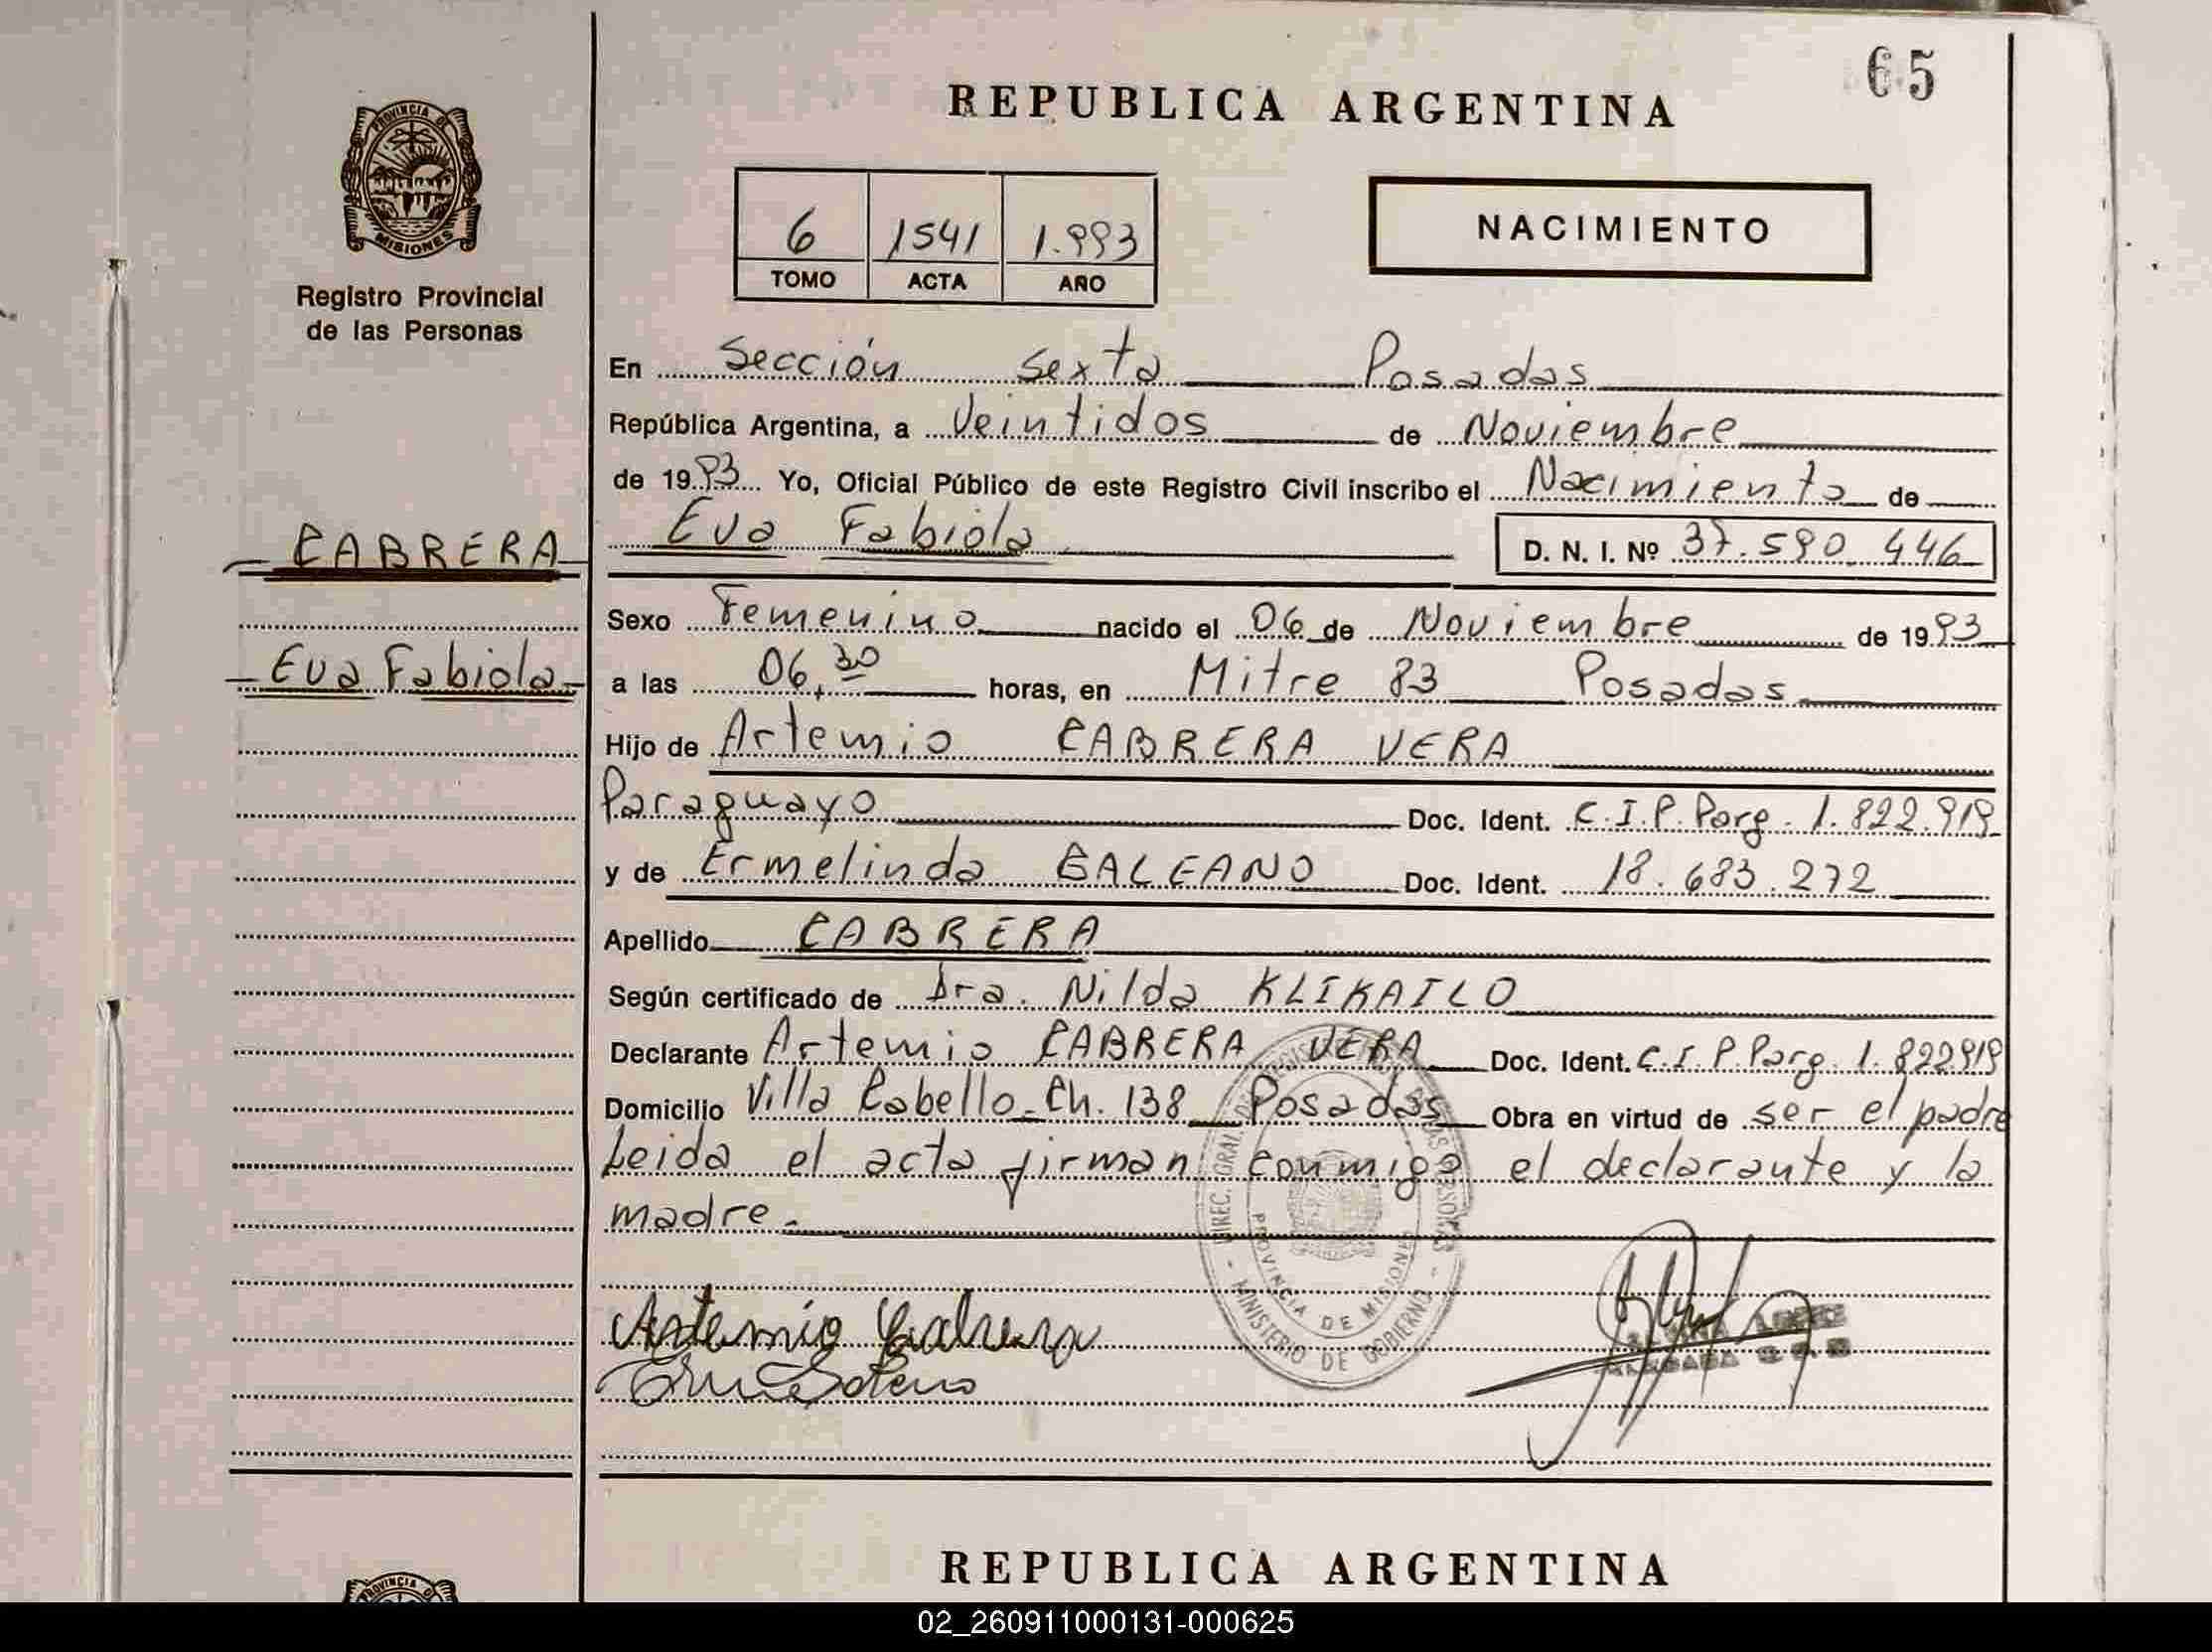 65
REPUBLICA ARGENTINA
PROVINCIA DE
MISIONES
Registro Provincial
de las Personas
6 1541 1.993
TOMO ACTA AÑO
NACIMIENTO
En Sección Sexta Posadas
República Argentina, a Veintidos de Noviembre
de 1993 Yo, Oficial Público de este Registro Civil inscribo el Nacimiento de
CABRERA
Eva Fabiola D. N. I. Nº 37.590.446
Sexo Femenino nacido el 06 de Noviembre de 1993
Eva Fabiola
a las 06,30 horas, en Mitre 83 Posadas
Hijo de Artemio CABRERA VERA
Paraguayo Doc. Ident. C.I.P. Parg. 1.822.919
y de Ermelinda GALEANO Doc. Ident. 18.683.272
Apellido CABRERA
Según certificado de Dra. Nilda KLIKAILO
Declarante Artemio CABRERA VERA Doc. Ident. C.I.P. Parg. 1.822919
Domicilio Villa Cabello - Ch. 138 Posadas Obra en virtud de ser el padre
Leida el acta firman conmigo el declarante y la
madre.-
DIREC. GRAL. DE REGIS PERSONAS
PROVINCIA DE MISIONES
- MINISTERIO DE GOBIERNO -
Artemio Cabrera
REPUBLICA ARGENTINA
PROVINCIA D
02_260911000131-000625